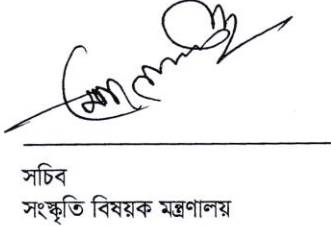 সচিব
সংস্কৃতি বিষয়ক মন্ত্রণালয়